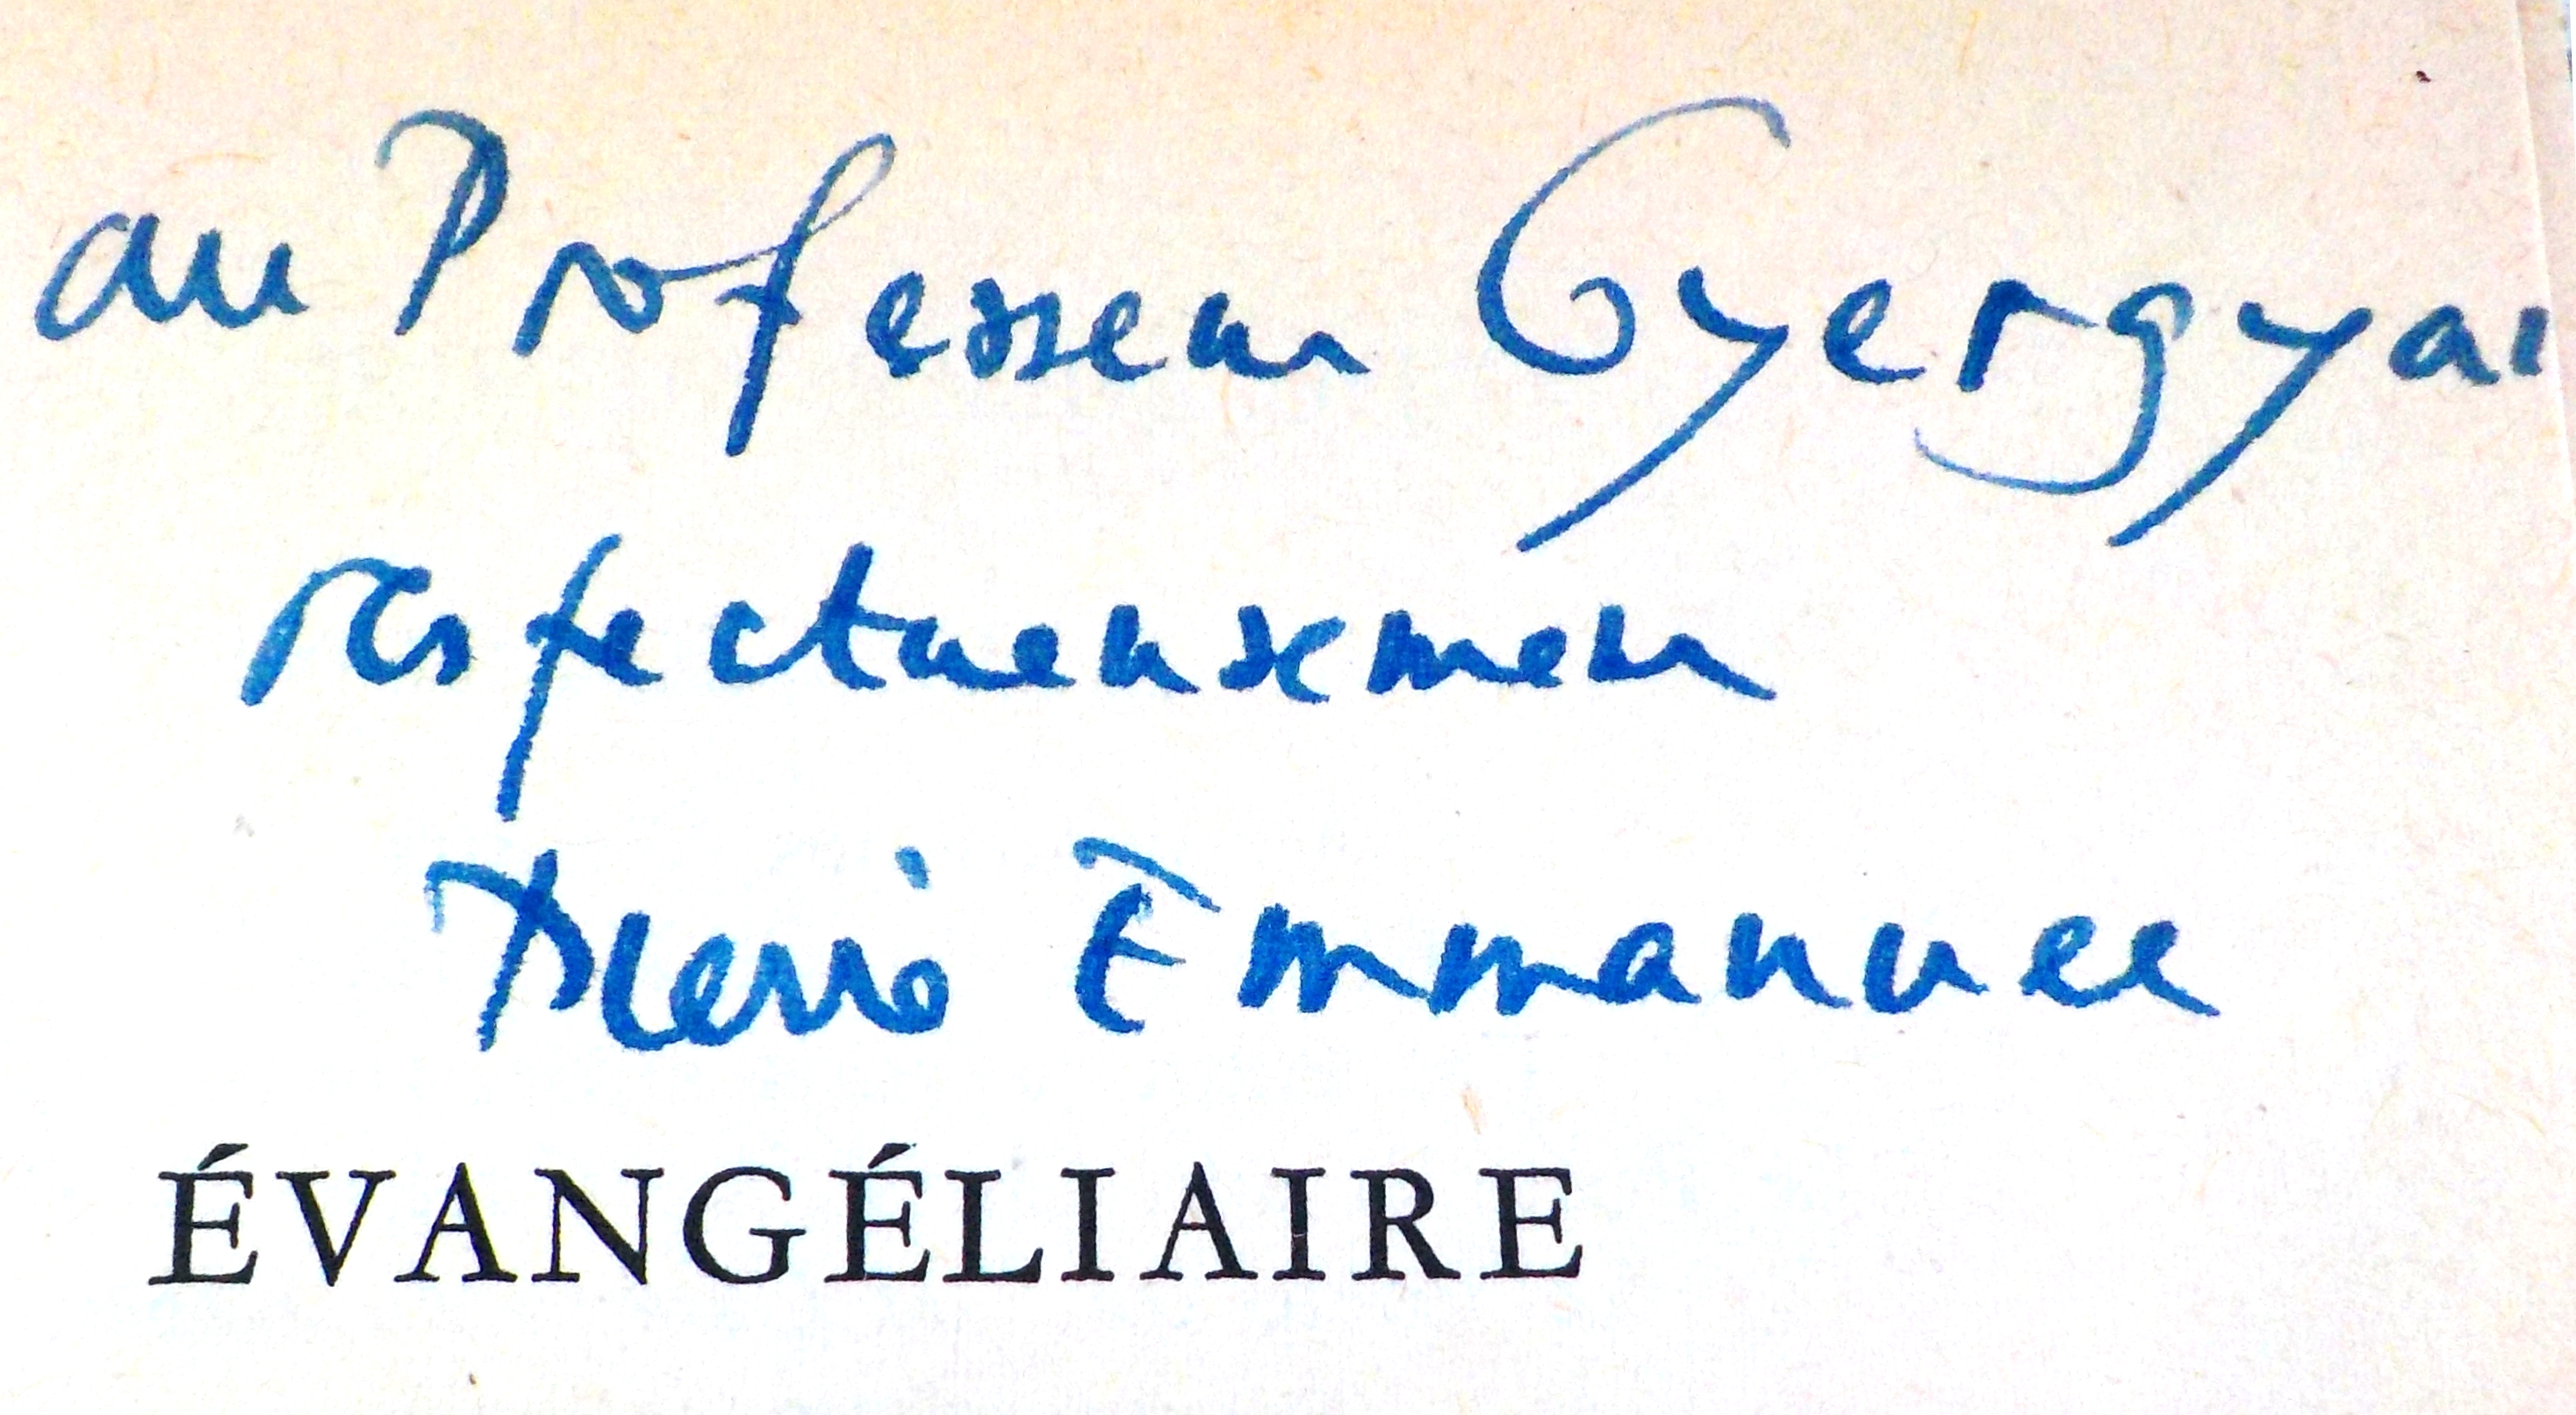 au Professeur Gyergyai
respectueusement
Pierre Emmanuel
ÉVANGÉLIAIRE